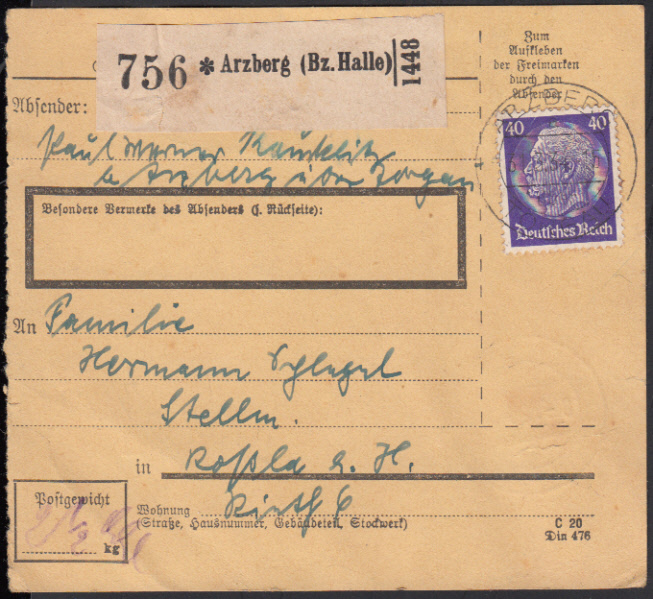 Zum
Aufkleben
der Freimarken
durch den
Absender
756 * Arzberg (Bz. Halle) 1448
ARZBERG
40 40
Deutsches Reich
Absender:
Paul Werner
Arzberg Torgau
Besondere Vermerke des Absenders (s. Rückseite):
An Familie
Hermann Schlegel
Stellm.
in Roßla a. H.
Postgewicht
kg
Wohnung
(Straße, Hausnummer, Gebäudeteil, Stockwerk)
C 20
Din 476